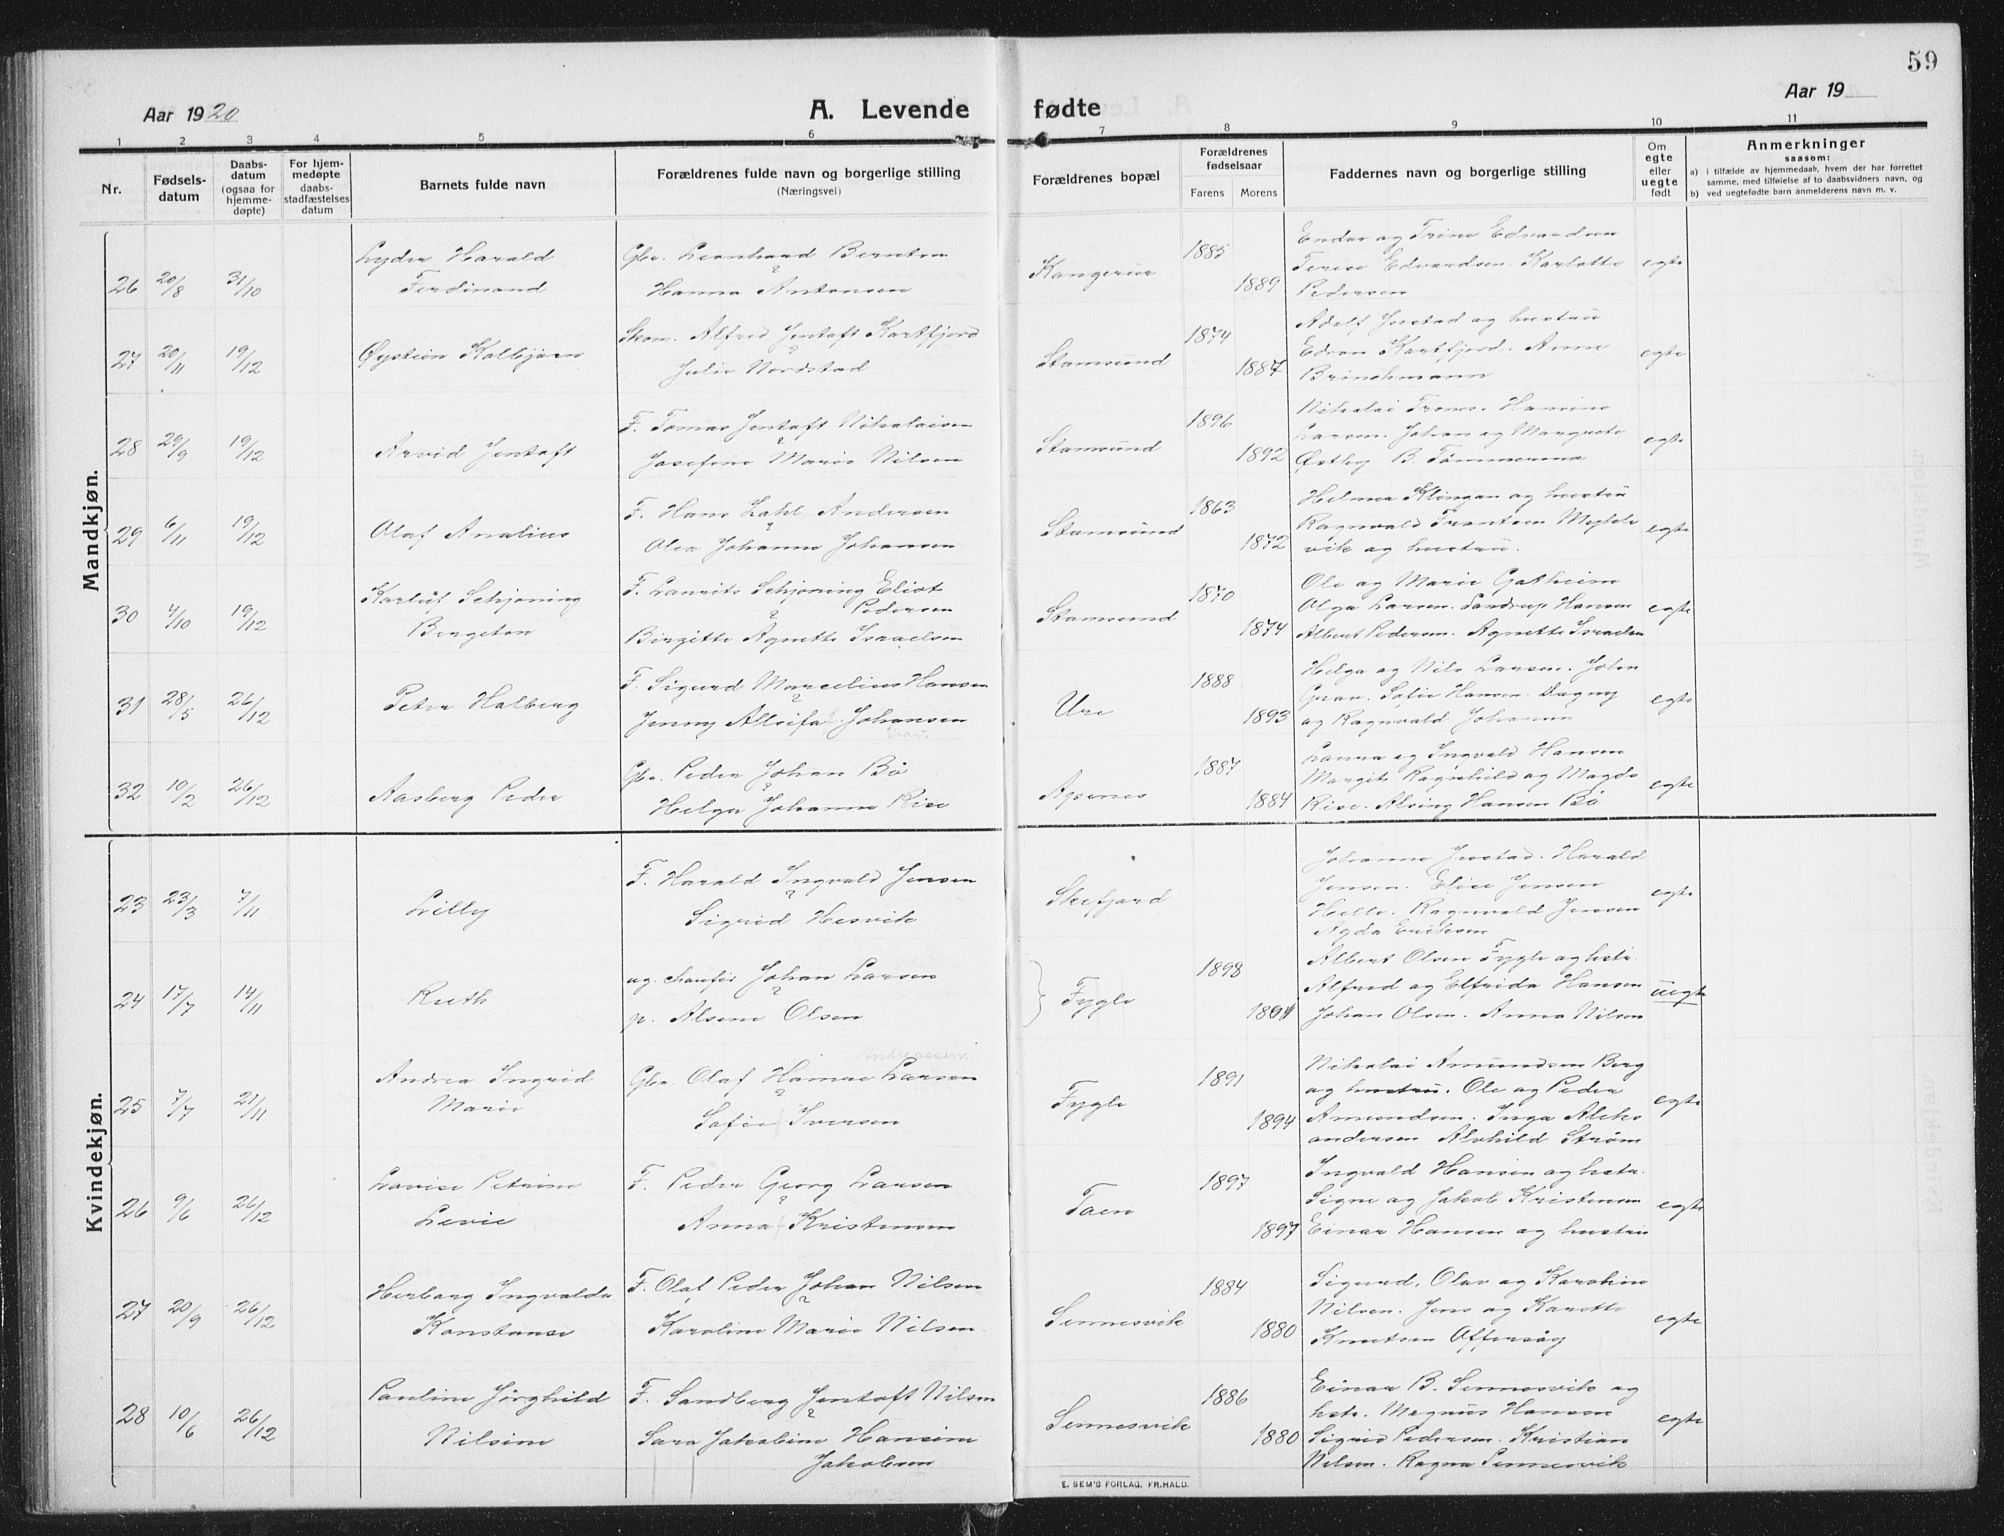 59
Aar 1920
A. Levende fødte
Aar 19
1 2 3 4 5 6 7 8 9 10 11
Nr.
Fødsels-
datum
Daabs-
datum
(ogsaa for
hjemme-
døpte)
For hjem-
medøpte
daabs-
stadfæstelses
datum
Barnets fulde navn
Forældrenes fulde navn og borgerlige stilling
(Næringsvei)
Forældrenes bopæl
Forældrenes
fødselsaar
Farens Morens
Faddernes navn og borgerlige stilling
Om
egte
eller
uegte
født
Anmerkninger
saasom:
a) i tilfælde av hjemmedaab, hvem der har forrettet
samme, med tilføielse af to daabsvidners navn, og
b) ved uegtefødte barn anmelderens navn m. v.
Mandkjøn.
26 20/8 31/10
Lyder Harald
Ferdinand
Gbr. Leonhard Berntsen
Hanna Antonsen
1885
1889
Edvardsen
Terese Edvardsen. Karlotte
Pedersen
egte
27 20/11 19/12
Øystein Kolbjørn
Skom. Alfred Jentoft Kartfjord
Julie Nordstad
Stamsund
1874
1887
Adolf Justad og hustru
Edvon Kartfjord. Anne
Brinchmann
egte
28 29/9 19/12
Arvid Jentoft
F. Tomas Jentoft Nikolaisen
Josefine Marie Nilsen
Stamsund
1896
1892
Nikolai Hansine
Larsen. Johan og Margrete
Østby B. Tömmernes
egte
29 6/11 19/12
Olaf Analius
F. Hans Dahl Andersen
Olea Johanne Johansen
Stamsund
1863
1872
Helmer Klingan og hustru
Ragnvald Frantsen
vik og hustru.
egte
30 4/10 19/12
Karluf Schjøning
Bergeton
F. Laurits Schjøning Eliot
Pedersen
Birgitte Agnette Israelsen
Stamsund
1870
1874
Ole og Marie Gatheim
Olga Larsen. Sandrup Hansen
Albert Pedersen. Agnette Israelsen
egte
31 28/5 26/12
Peter Halberg
F. Sigurd Marcelius Hansen
Jenny Allvifa Johansen
Ure
1888
1893
Helga og Nils Larsen. John
Grav. Sofie Hansen. Dagny
og Ragnvald Johansen
egte
32 10/2 26/12
Aasberg Peder
Gbr. Peder Johan Bö
Helga Johanne Rise
Apenes
1887
1884
Laura og Ingvald Hansen
Margit Ragnhild og Magda
Rise. Alving Hansen Bö
egte
Kvindekjøn.
23 23/3 7/11
Lilly
F. Harald Ingvald Jensen
Sigrid Hesvik
Skifjord
Johanna Justad. Harald
Jensen. Elise Jensen
Helle. Ragnvald Jensen
Agda Eriksen
egte
24 17/7 14/11
Ruth
ug. chaufør Johan Larsen
p. Alsine Olsen
Fygle
1898
Albert Olsen Fygle og hstr.
Alfred og Elfrida Hansen
Johan Olsen. Anna Nilsen
uegte
25 7/7 21/11
Andrea Ingrid
Marie
Andreassen
Gbr. Olaf Larsen
Sofie Iversen
Fygle
1891
1894
Nikolai Amundsen Berg
og hustru. Ole og Peder
Amundsen. Inga Aleks
andersen Alvhild Strøm
egte
26 9/6 26/12
Lovise Petrine
Levie
F. Peder Georg Larsen
Anna Kristensen
Taen
1897
1897
Ingvald Hansen og hstr.
Signe og Jakob Kristensen
Einar Hansen og hustru
egte
27 20/9 26/12
Herborg Ingvalda
Konstanse
F. Olaf Peder Johan Nilsen
Karoline Marie Nilsen
Sennesvik
1884
1880
Sigurd, Olav og Karoline
Nilsen. Jens og Karette
Knutsen Offersøy
egte
28 10/6 26/12
Pauline Jörghild
Nilsine
F. Sandberg Jentoft Nilsen
Sara Jakobine Hansine
Jakobsen
Sennesvik
1886
1880
Einar B. Sennesvik og
hstr. Magnus Hansen
Sigrid Pedersen. Kristian
Nilsen. Ragna Sennesvik
egte
E. SEM'S FORLAG, FR.HALD.